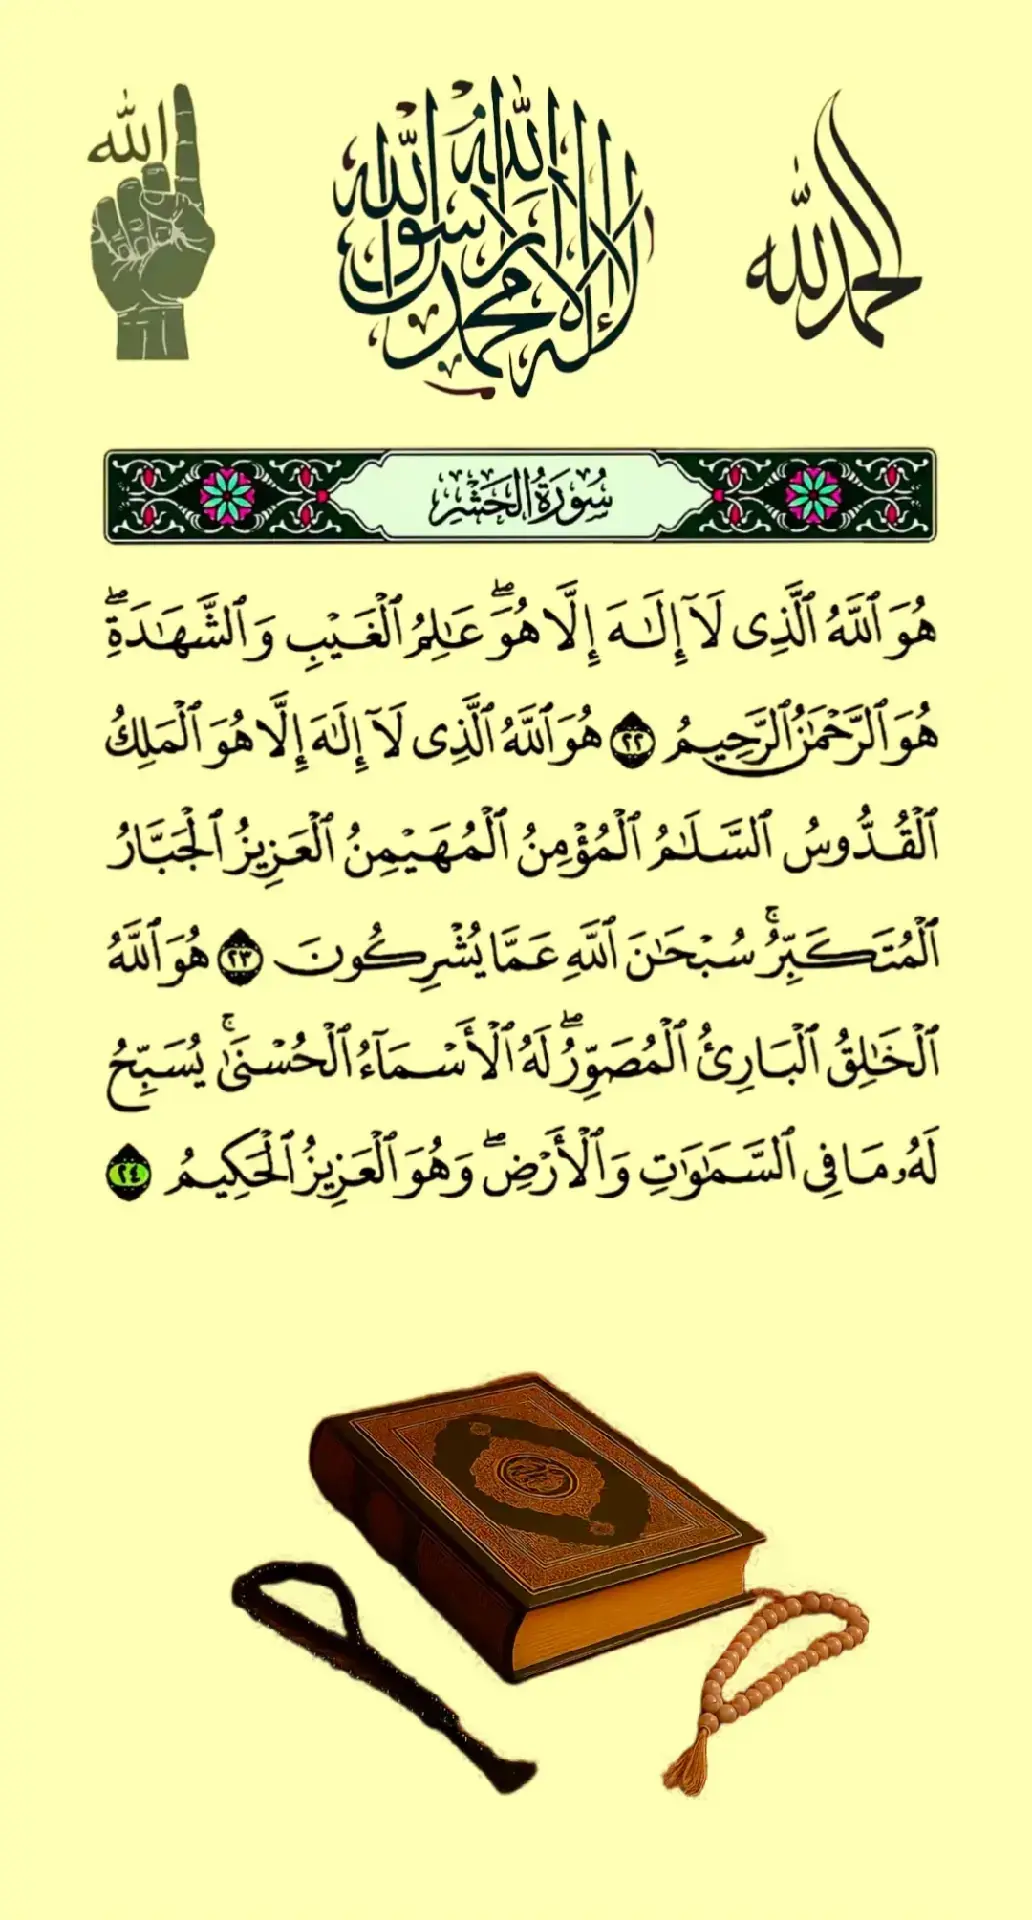 الله
لا إله إلا الله محمد رسول الله
الحمد لله
سُورَةُ الحَشْرِ
هُوَ ٱللَّهُ ٱلَّذِى لَآ إِلَـٰهَ إِلَّا هُوَۖ عَـٰلِمُ ٱلْغَيْبِ وَٱلشَّهَـٰدَةِۖ
هُوَ ٱلرَّحْمَـٰنُ ٱلرَّحِيمُ ٢٢ هُوَ ٱللَّهُ ٱلَّذِى لَآ إِلَـٰهَ إِلَّا هُوَ ٱلْمَلِكُ
ٱلْقُدُّوسُ ٱلسَّلَـٰمُ ٱلْمُؤْمِنُ ٱلْمُهَيْمِنُ ٱلْعَزِيزُ ٱلْجَبَّارُ
ٱلْمُتَكَبِّرُۚ سُبْحَـٰنَ ٱللَّهِ عَمَّا يُشْرِكُونَ ٢٣ هُوَ ٱللَّهُ
ٱلْخَـٰلِقُ ٱلْبَارِئُ ٱلْمُصَوِّرُۖ لَهُ ٱلْأَسْمَآءُ ٱلْحُسْنَىٰۚ يُسَبِّحُ
لَهُۥ مَا فِى ٱلسَّمَـٰوَٰتِ وَٱلْأَرْضِۖ وَهُوَ ٱلْعَزِيزُ ٱلْحَكِيمُ ٢٤